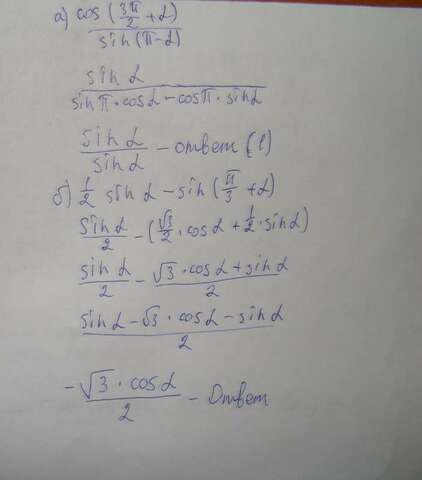 а) cos (3π/2 + α) / sin (π - α)
sin α / sin π · cos α - cos π · sin α
sin α / sin α - ответ (1)
б) 1/2 sin α - sin (π/3 + α)
sin α / 2 - (√3/2 · cos α + 1/2 · sin α)
sin α / 2 - √3 · cos α + sin α / 2
sin α - √3 · cos α - sin α / 2
- √3 · cos α / 2 - Ответ